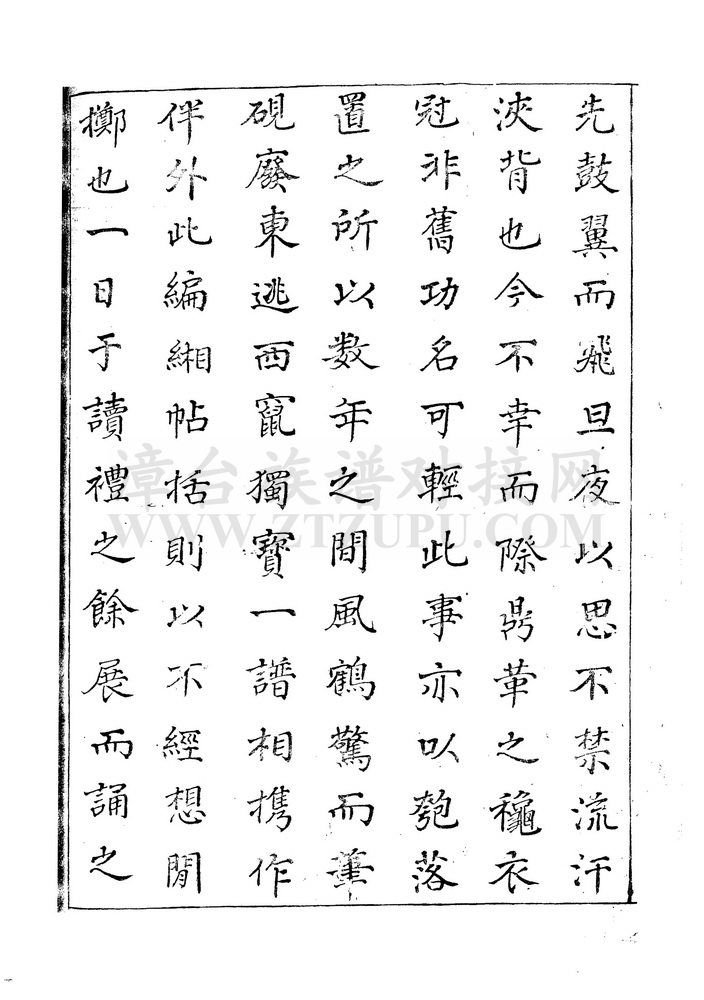 先鼓翼而飛旦夜以思不禁流汗
浹背也今不幸而際鼎革之龝衣
冠非舊功名可輕此事亦以匏落
置之所以数年之間風鶴驚而筆
硯廢東逃西竄獨寶一譜相携作
伴外此編緗帖括則以不經想閒
擲也一日于讀禮之餘展而誦之
漳台族谱对接网
WWW.ZTZUPU.COM